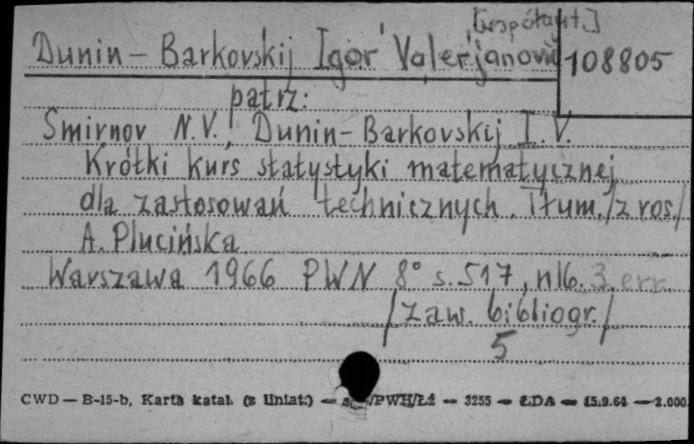 [współaut.]
Dunin-Barkovskij Igor' Valerjanovič
108805
patrz:
Smirnov N.V., Dunin-Barkovskij I.V.
Krótki kurs statystyki matematycznej
dla zastosowań technicznych. Tłum. /z ros./
A. Plucińska
Warszawa 1966 PWN 8° s. 517, nlb. 3 err.
/zaw. bibliogr./
5
CWD — B-15-b, Karta katal. (z Uniat.) — /PWH/Łź — 3255 — ŁDA — 15.9.64 — 2.000